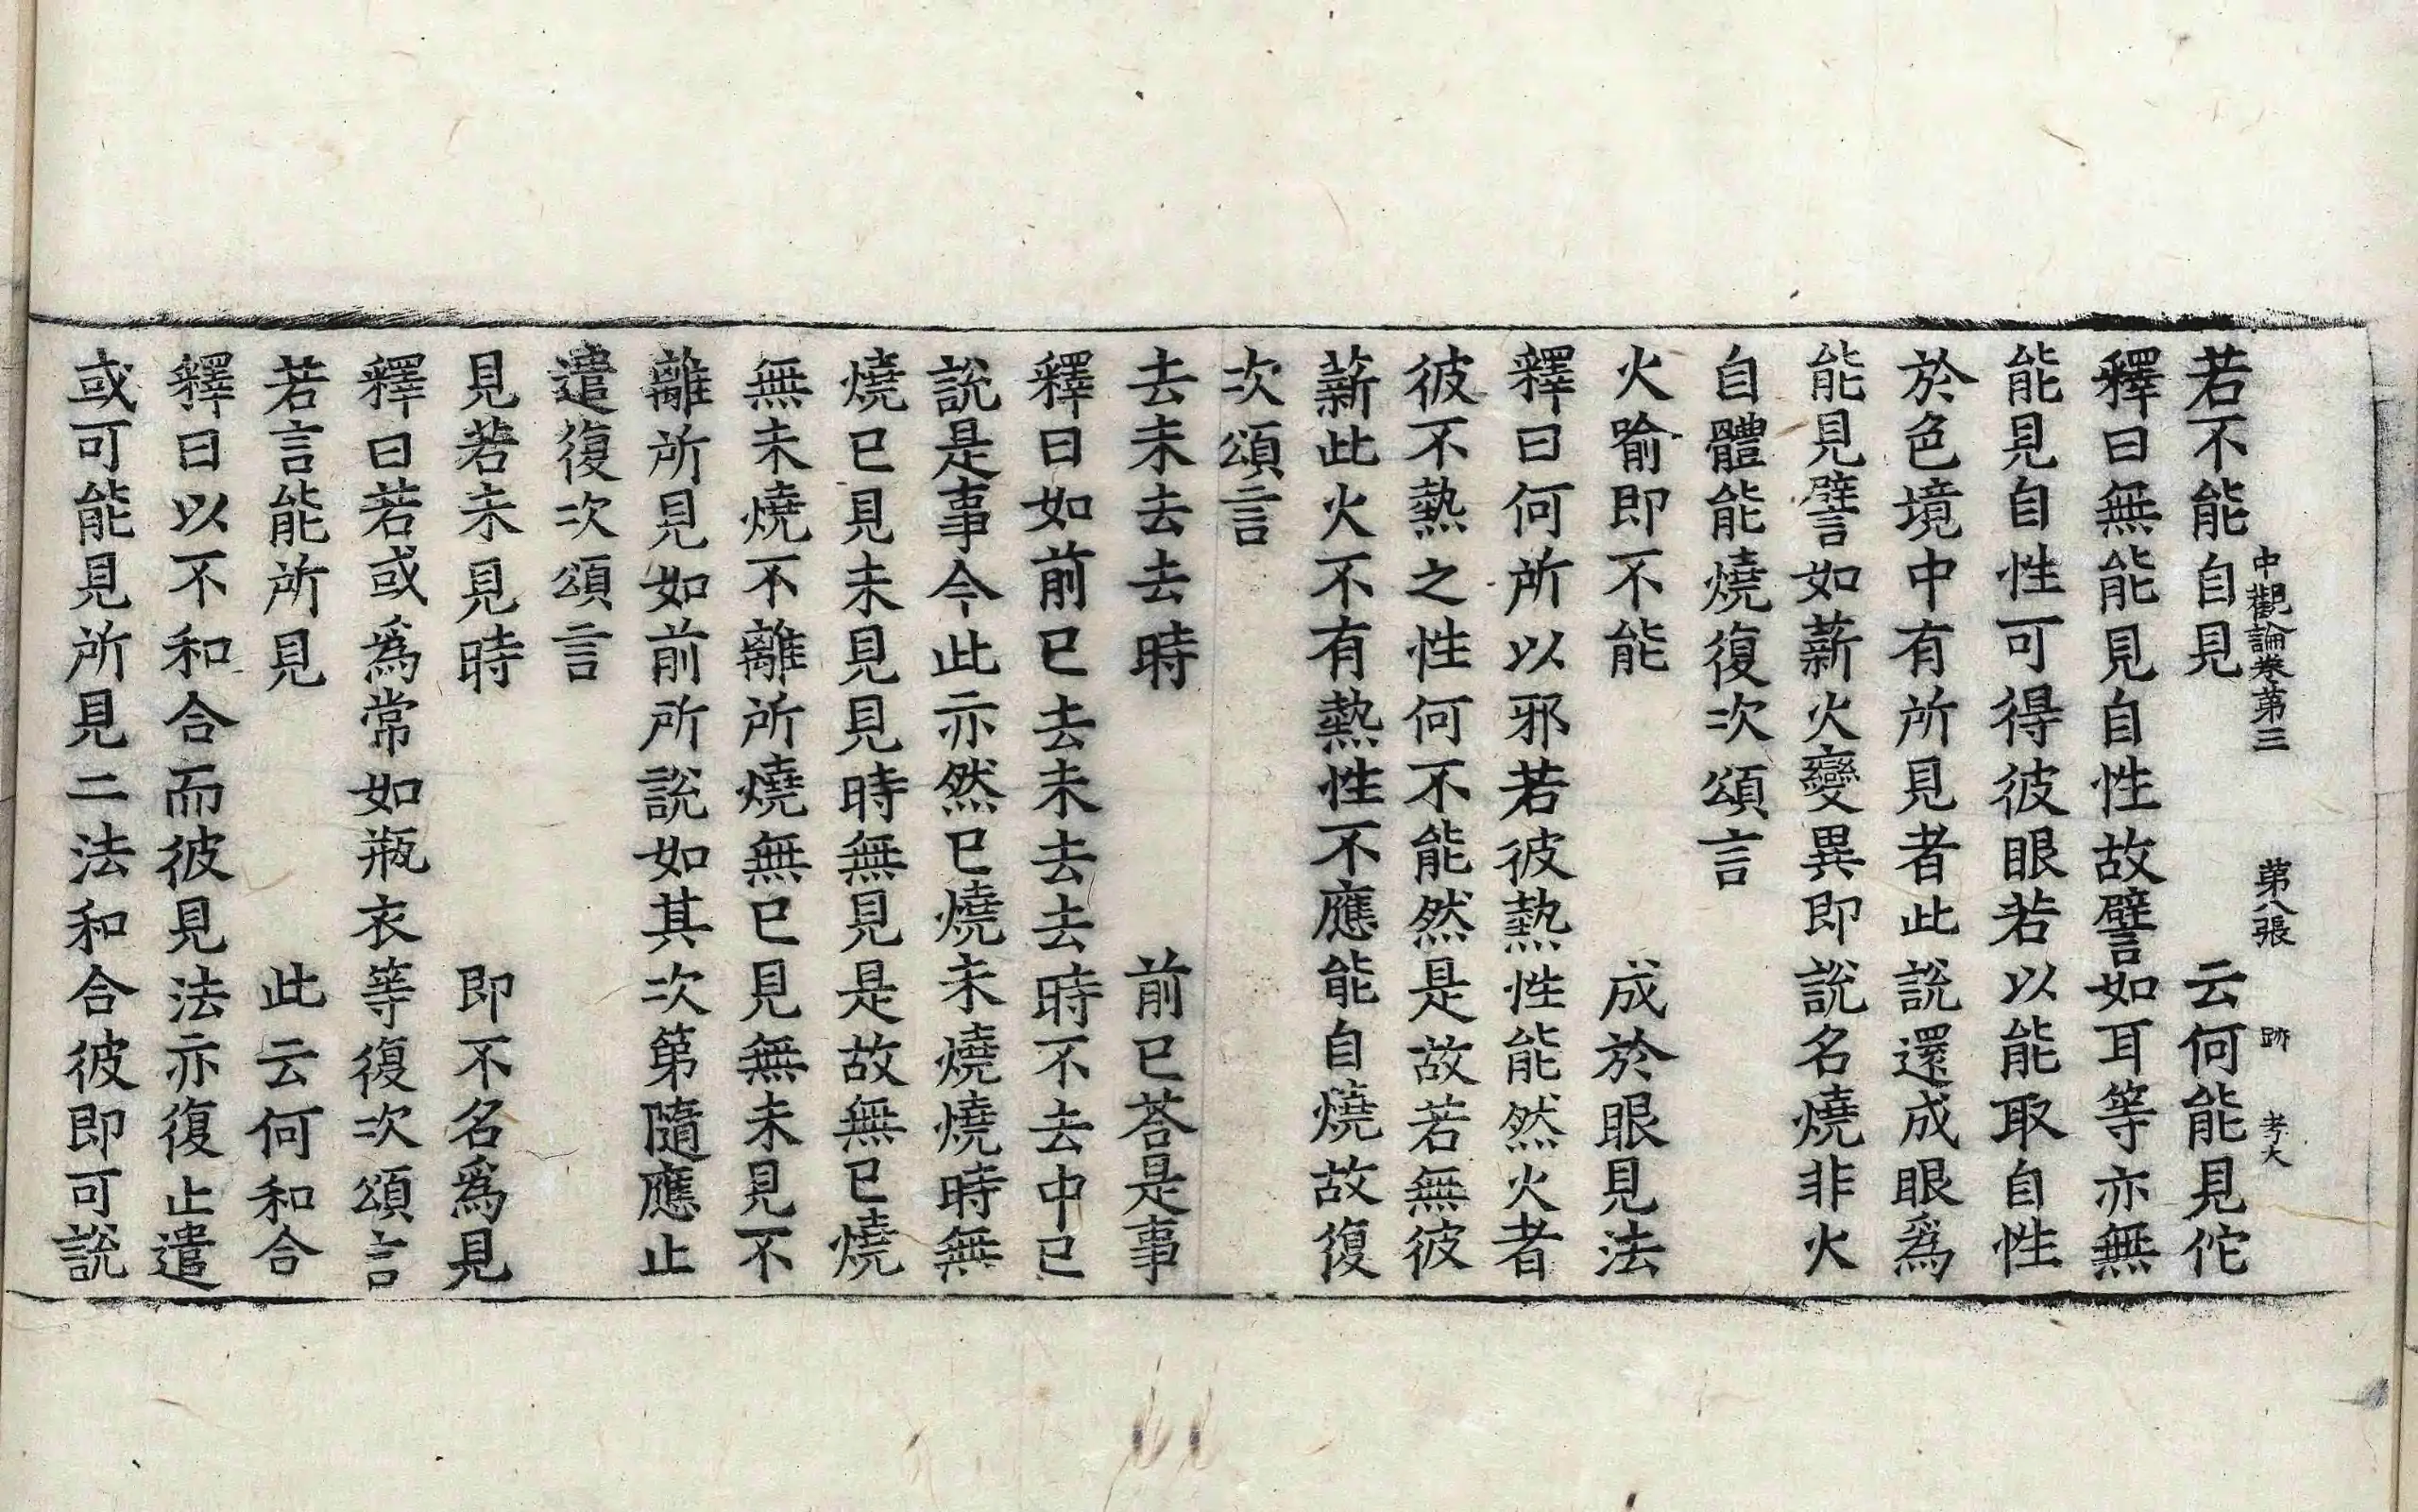 中觀論卷第三　第八張　跡　考大
若不能自見　云何能見佗
釋曰無能見自性故譬如耳等亦無
能見自性可得彼眼若以能取自性
於色境中有所見者此說還成眼爲
能見譬如薪火變異即說名燒非火
自體能燒復次頌言
火喻即不能　成於眼見法
釋曰何所以邪若彼熱性能然火者
彼不熱之性何不能然是故若無彼
薪此火不有熱性不應能自燒故復
次頌言
去未去去時　前已荅是事
釋曰如前已去未去去時不去中已
說是事今此亦然已燒未燒燒時無
燒已見未見見時無見是故無已燒
無未燒不離所燒無已見無未見不
離所見如前所說如其次第隨應止
遣復次頌言
見若未見時　即不名爲見
釋曰若或爲常如瓶衣等復次頌言
若言能所見　此云何和合
釋曰以不和合而彼見法亦復止遣
或可能見所見二法和合彼即可說